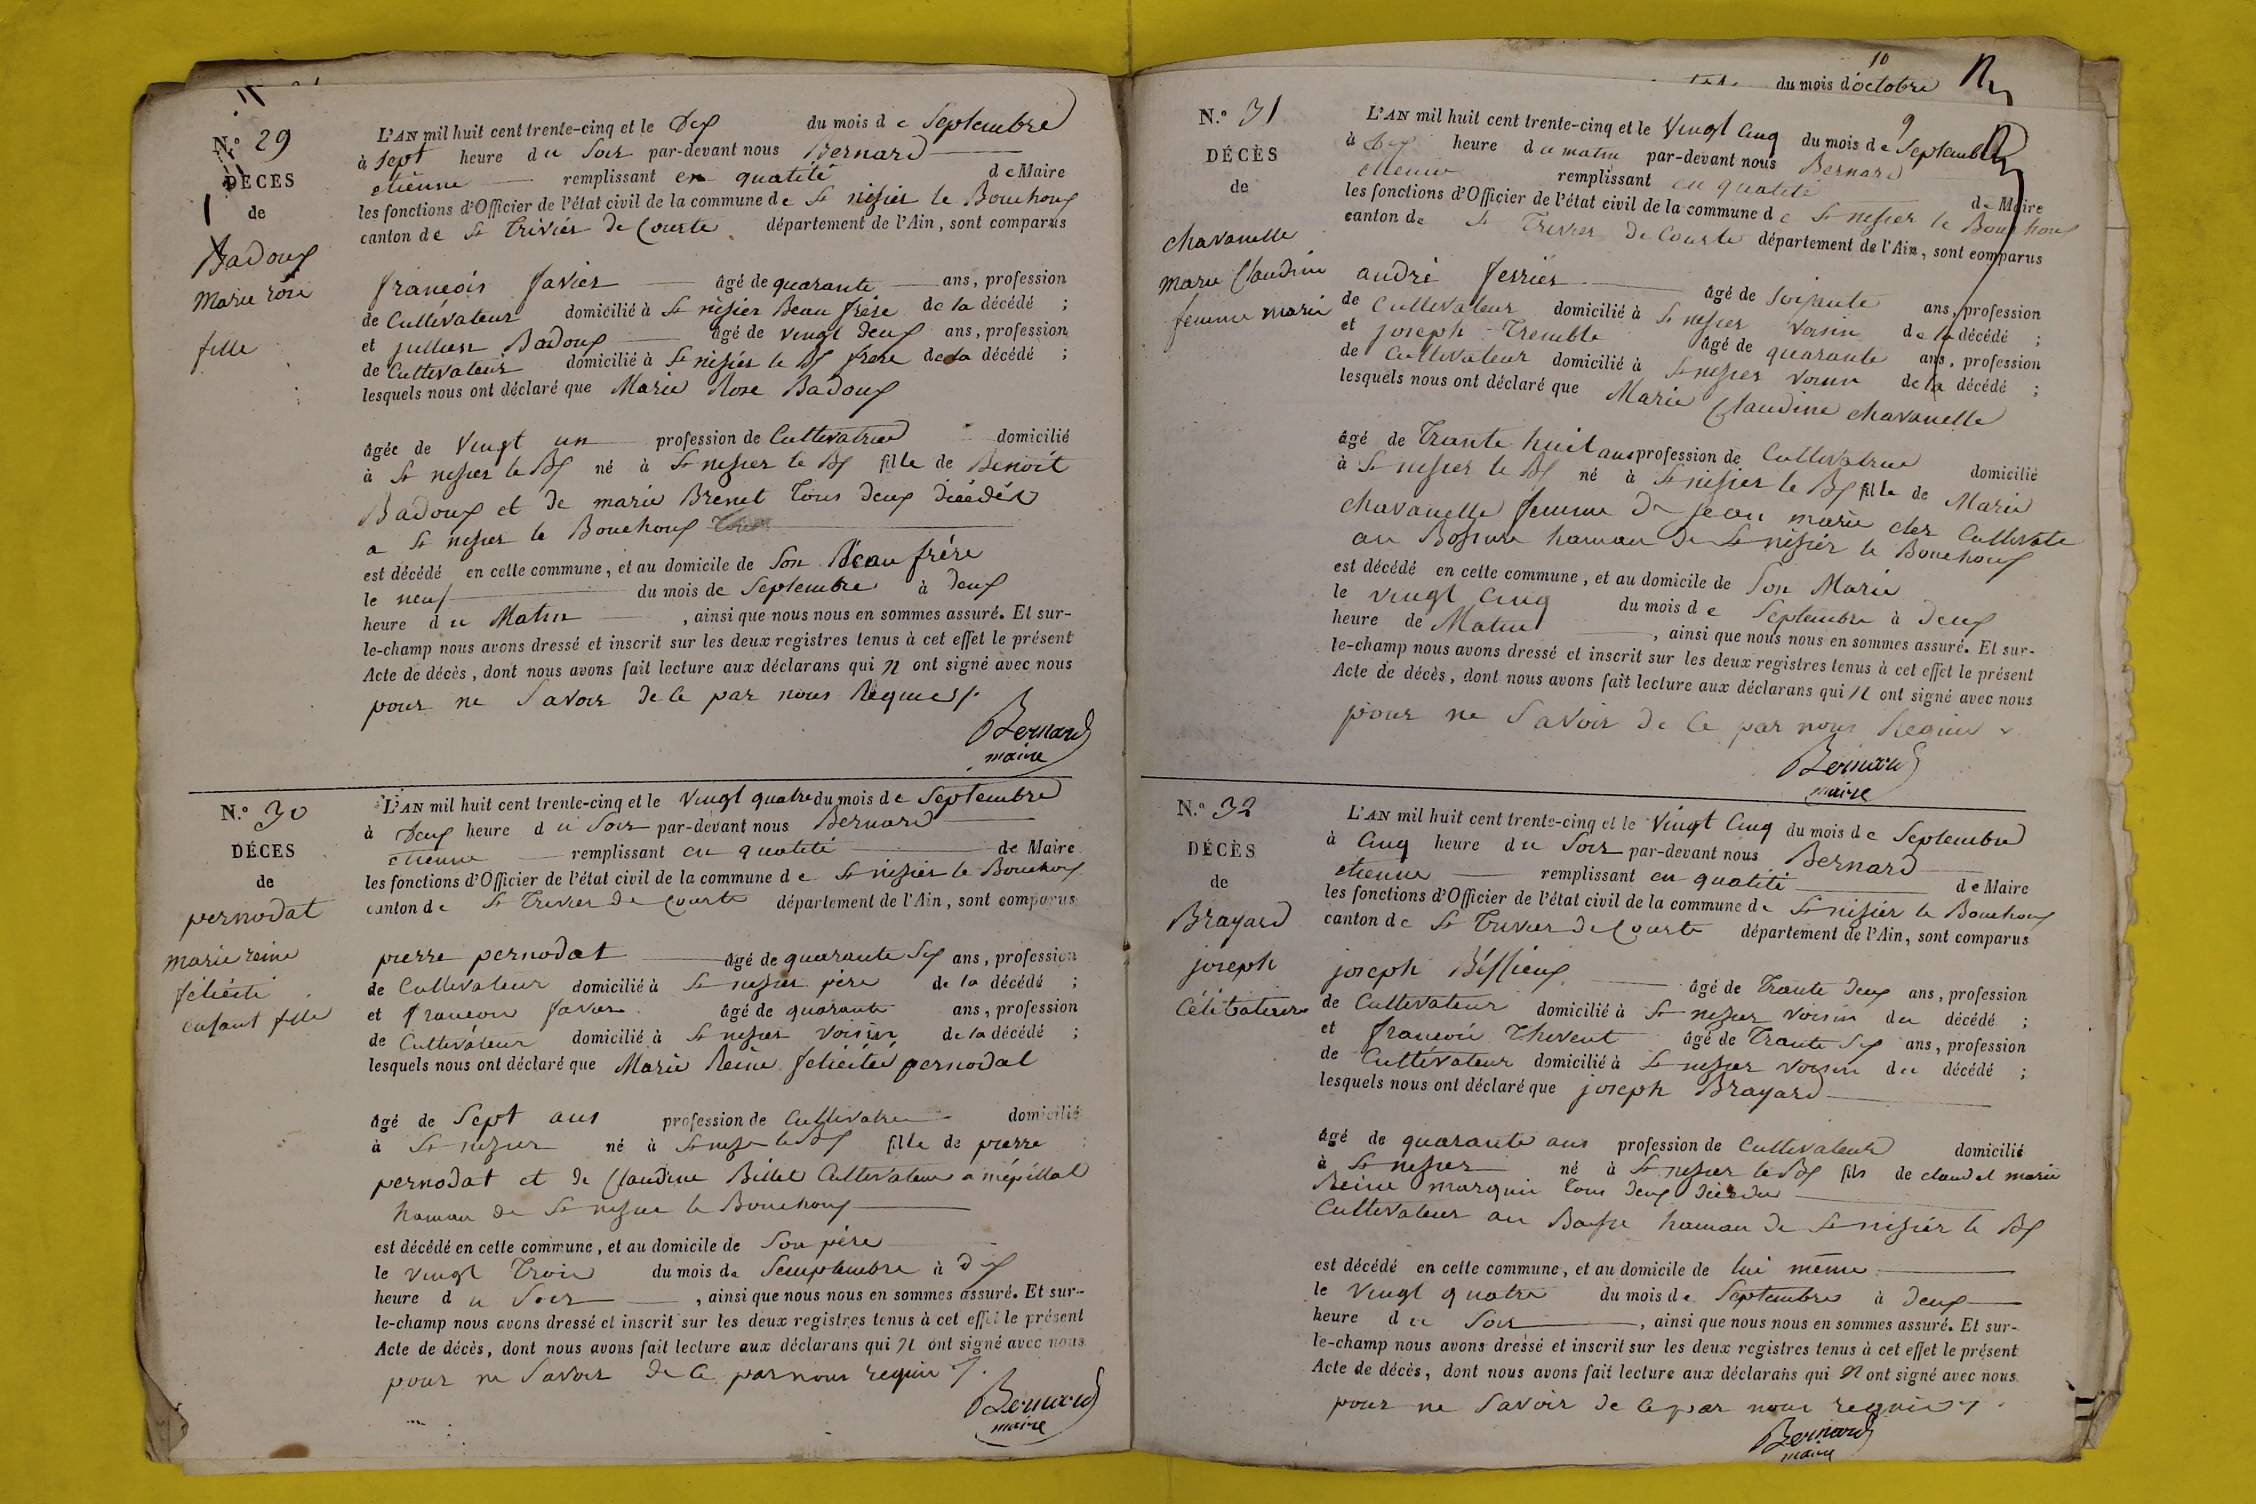 N.º 29
DÉCES
de
Badoux
Marie rose
fille
L'AN mil huit cent trente-cinq et le Dix du mois de Septembre
à sept heure du Soir par-devant nous Bernard
etienne remplissant en qualité de Maire
les fonctions d'Officier de l'état civil de la commune de St nisier le Bouchoux
canton de St Trivier de Courte département de l'Ain, sont comparus
francois favier âgé de quarante ans, profession
de Cultivateur domicilié à St nisier Beau frère de la décédé ;
et jullien Badoux âgé de vingt deux ans, profession
de Cultivateur domicilié à St nisier le Bx frere de la décédé ;
lesquels nous ont déclaré que Marie Rose Badoux
âgée de Vingt un profession de Cultivatrice domicilié
à St nisier le Bx né à St nisier le Bx fille de Benoit
Badoux et de marie Brenet tous deux décédés
a St nisier le Bouchoux
est décédé en cette commune, et au domicile de Son Beau frére
le neuf du mois de Septembre à deux
heure du Matin , ainsi que nous nous en sommes assuré. Et sur-
le-champ nous avons dressé et inscrit sur les deux registres tenus à cet effet le présent
Acte de décès, dont nous avons fait lecture aux déclarans qui n ont signé avec nous
pour ne Savoir de ce par nous Requis
Bernard
maire
N.º 30
DÉCES
de
pernodat
marie reine
félicité
enfant fille
L'AN mil huit cent trente-cinq et le Vingt quatre du mois de Septembre
à Deux heure du Soir par-devant nous Bernard
etienne remplissant en qualité de Maire
les fonctions d'Officier de l'état civil de la commune de St nisier le Bouchoux
canton de St Trivier de Courte département de l'Ain, sont comparus
pierre pernodat âgé de quarante Six ans, profession
de Cultivateur domicilié à St nisier père de la décédé ;
et francois favier âgé de quarante ans, profession
de Cultivateur domicilié à St nisier Voisin de la décédé ;
lesquels nous ont déclaré que Marie Reine félicité pernodat
âgé de Sept ans profession de Cultivatrice domicilié
à St nisier né à St nisier le Bx fille de pierre
pernodat et de Claudine Billet Cultivateur a mépillat
hamau de St nisier le Bouchoux
est décédé en cette commune, et au domicile de Son père
le vingt Trois du mois de Semptembre à dix
heure du Soir , ainsi que nous nous en sommes assuré. Et sur-
le-champ nous avons dressé et inscrit sur les deux registres tenus à cet effet le présent
Acte de décès, dont nous avons fait lecture aux déclarans qui n ont signé avec nous
pour ne Savoir de ce par nous requis
Bernard
maire
10
du mois d'octobre
N.º 31
DÉCÈS
de
chavanelle
marie Claudine
femme marié
L'AN mil huit cent trente-cinq et le Vingt Cinq du mois de Septembre
9
à Dix heure du matin par-devant nous Bernard
etienne remplissant en qualité de Maire
les fonctions d'Officier de l'état civil de la commune de St nisier le Bouchoux
canton de St Trivier de Courte département de l'Ain, sont comparus
andré ferrier âgé de Soixante ans, profession
de Cultivateur domicilié à St nisier Voisin de la décédé ;
et joseph Tremble âgé de quarante ans, profession
de Cultivateur domicilié à St nisier Voisin de la décédé ;
lesquels nous ont déclaré que Marie Claudine chavanelle
âgé de Trante huit ans profession de Cultivatrice domicilié
à St nisier le Bx né à St nisier le Bx fille de Marie
chavanelle femme de jean marie Cultivate
au hamau de St nisiér le Bouchoux
est décédé en cette commune, et au domicile de Son Marie
le vingt Cinq du mois de Septembre à deux
heure de Matin , ainsi que nous nous en sommes assuré. Et sur-
le-champ nous avons dressé et inscrit sur les deux registres tenus à cet effet le présent
Acte de décès, dont nous avons fait lecture aux déclarans qui n ont signé avec nous
pour ne Savoir de ce par nous Requis
Bernard
maire
N.º 32
DÉCÈS
de
Brayard
joseph
Célibataire
L'AN mil huit cent trente-cinq et le Vingt Cinq du mois de Septembre
à Cinq heure du Soir par-devant nous Bernard
etienne remplissant en qualité de Maire
les fonctions d'Officier de l'état civil de la commune de St nisiér le Bouchoux
canton de St Trivier de Courte département de l'Ain, sont comparus
joseph âgé de Trante deux ans, profession
de Cultivateur domicilié à St nisier voisin du décédé ;
et francois Thevent âgé de Trante Six ans, profession
de Cultivateur domicilié à St nisier voisin du décédé ;
lesquels nous ont déclaré que joseph Brayard
âgé de quarante ans profession de Cultivateur domicilié
à St nisier né à St nisier le Bx fils de claud et marie
Reine marguin tous deux
Cultivateur au hamau de St nisiér le Bx
est décédé en cette commune, et au domicile de lui même
le Vingt quatre du mois de Septembre à deux
heure du Soir , ainsi que nous nous en sommes assuré. Et sur-
le-champ nous avons dressé et inscrit sur les deux registres tenus à cet effet le présent
Acte de décès, dont nous avons fait lecture aux déclarans qui n ont signé avec nous
pour ne Savoir de ce par nous requis
Bernard
maire